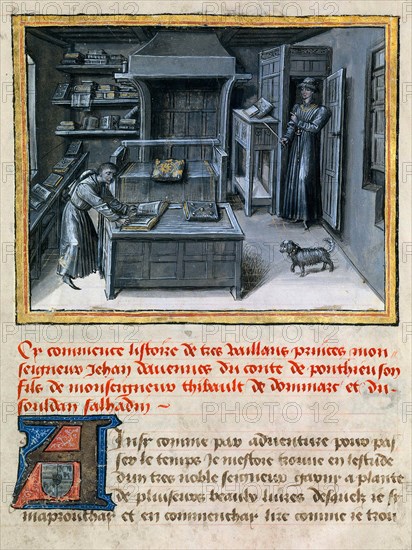 Cy commence listoire de tres vaillans princes mon
seigneur Jehan davennes du conte de ponthieu son
filz de monseigneur thibault de dommare et du
souldan salhadin
Ainsy comme par adventure pour pas
ser le temps Je mestoie trouve en lestude
dun tres noble seigneur garny a plante
de pluiseurs beaulx livres desquelz je
maprouchay et en commenchay lire comme je trou
PHOTO12